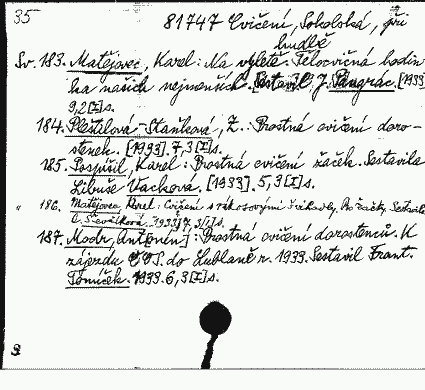 35
81747 Cvičení, Sokolská, při
hudbě
Sv. 183. Matějovec, Karel: Na výletě. Tělocvičná hodin
ka našich nejmenších. Sestavil J. Pangrác. [1933]
9,2[I]s.
184. Pleštilová-Staňková, Z.: Prostná cvičení doro-
stenek. [1933]. 7,3[I]s.
185. Pospíšil, Karel: Prostná cvičení žaček. Sestavila
Libuše Vacková. [1933]. 5,3[I]s.
" 186. Matějovec, Karel: Cvičení s Pro žačky. Sestavila
1933]. 7,3[I]s.
187. Modr, Antonín]: Prostná cvičení dorostenců. K
zájezdu do Lublaně r. 1933. Sestavil Frant.
1933. 6,3[I]s.